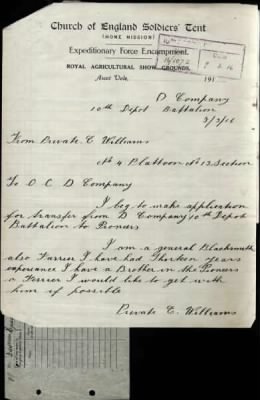 Church of England Soldiers' Tent
(HOME MISSION)
Expeditionary Force Encampment,
ROYAL AGRICULTURAL SHOW GROUNDS,
Ascot Vale,
191
D Company
10th Depot Battalion
3/3/16
From Private C Williams
No 4 Plattoon No 13 Section
To O C D Company
I beg to make application
for transfer from D Company 10th Depot
Battalion to Pioneers
I am a general Blacksmith
also Farrier I have had Thirteen years
experance I have a Brother in the Pioneers
a Farrier I would like to get with
him if possible
Private C. Williams